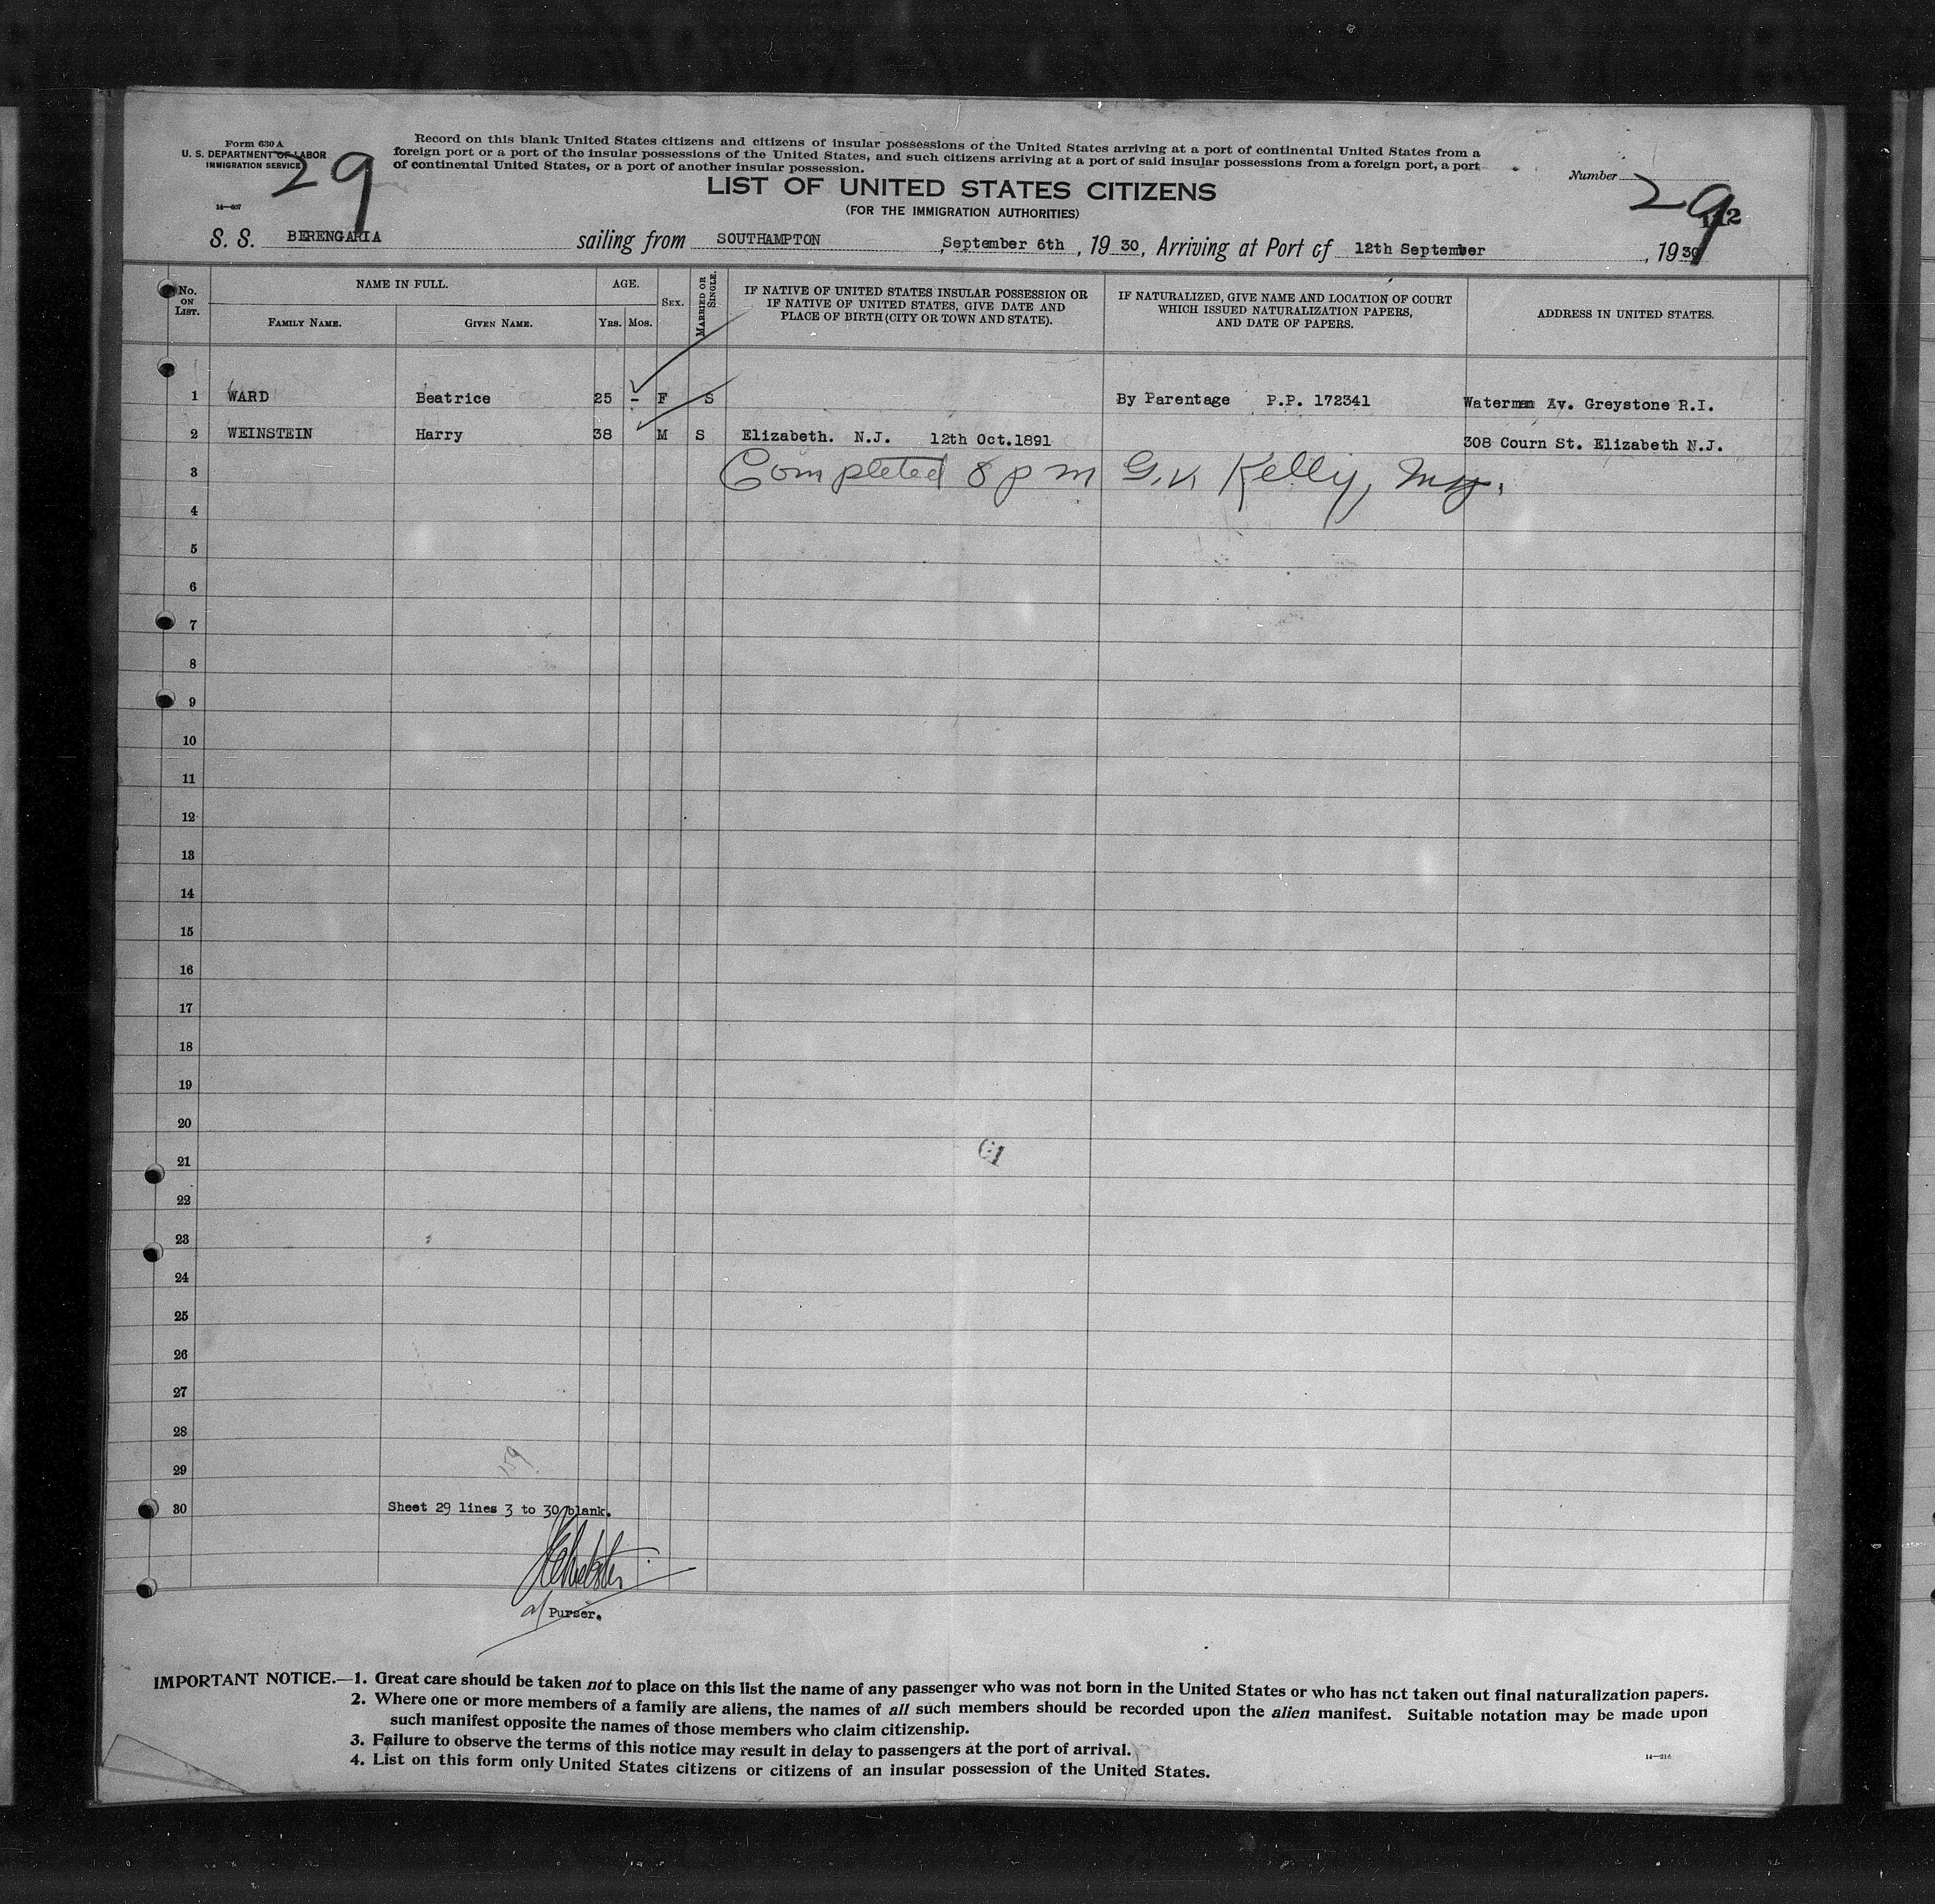 Form 630 A
U. S. DEPARTMENT OF LABOR
IMMIGRATION SERVICE
29
14—607
Record on this blank United States citizens and citizens of insular possessions of the United States arriving at a port of continental United States from a
foreign port or a port of the insular possessions of the United States, and such citizens arriving at a port of said insular possessions from a foreign port, a port
of continental United States, or a port of another insular possession.
LIST OF UNITED STATES CITIZENS
(FOR THE IMMIGRATION AUTHORITIES)
Number 29
S. S. BERENGARIA sailing from SOUTHAMPTON, September 6th, 1930, Arriving at Port of 12th September, 1930
No. ON LIST. NAME IN FULL. AGE. SEX. MARRIED OR SINGLE. IF NATIVE OF UNITED STATES INSULAR POSSESSION OR IF NATIVE OF UNITED STATES, GIVE DATE AND PLACE OF BIRTH (CITY OR TOWN AND STATE). IF NATURALIZED, GIVE NAME AND LOCATION OF COURT WHICH ISSUED NATURALIZATION PAPERS, AND DATE OF PAPERS. ADDRESS IN UNITED STATES.
FAMILY NAME. GIVEN NAME. YRS. MOS.
1 WARD Beatrice 25 - F S By Parentage P.P. 172341 Waterman Av. Greystone R.I.
2 WEINSTEIN Harry 38 M S Elizabeth. N.J. 12th Oct.1891 308 Courn St. Elizabeth N.J.
3 Completed 8 p m G.V. Kelly,
4
5
6
7
8
9
10
11
12
13
14
15
16
17
18
19
20
21
22
23
24
25
26
27
28
29
30 Sheet 29 lines 3 to 30 blank.
Purser.
IMPORTANT NOTICE.—1. Great care should be taken not to place on this list the name of any passenger who was not born in the United States or who has not taken out final naturalization papers.
2. Where one or more members of a family are aliens, the names of all such members should be recorded upon the alien manifest. Suitable notation may be made upon
such manifest opposite the names of those members who claim citizenship.
3. Failure to observe the terms of this notice may result in delay to passengers at the port of arrival.
4. List on this form only United States citizens or citizens of an insular possession of the United States.
14—216